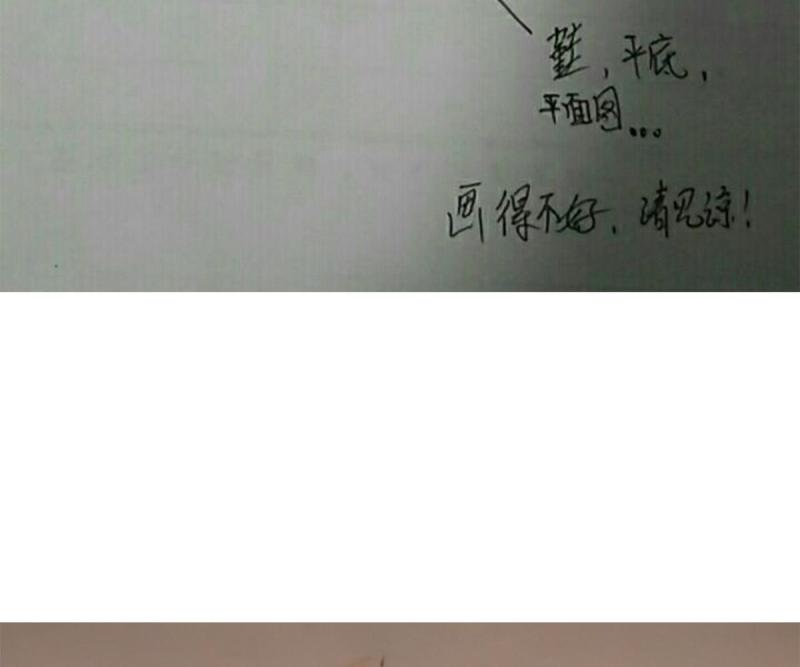 鞋，平底，
平面图...
画得不好，请见谅！